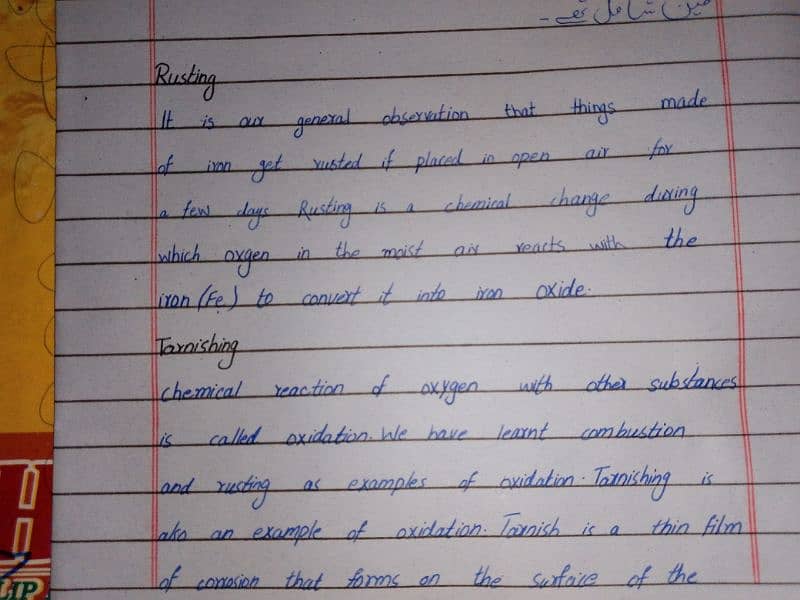 میں شامل تھے۔
Rusting
It is our general observation that things made
of iron get rusted if placed in open air for
a few days Rusting is a chemical change during
which oxgen in the moist air reacts with the
iron (Fe) to convert it into iron oxide.
Tarnishing
chemical reaction of oxygen with other substances
is called oxidation. We have learnt combustion
and rusting as examples of oxidation. Tarnishing is
also an example of oxidation. Tarnish is a thin film
of corrosion that forms on the surface of the
LIP